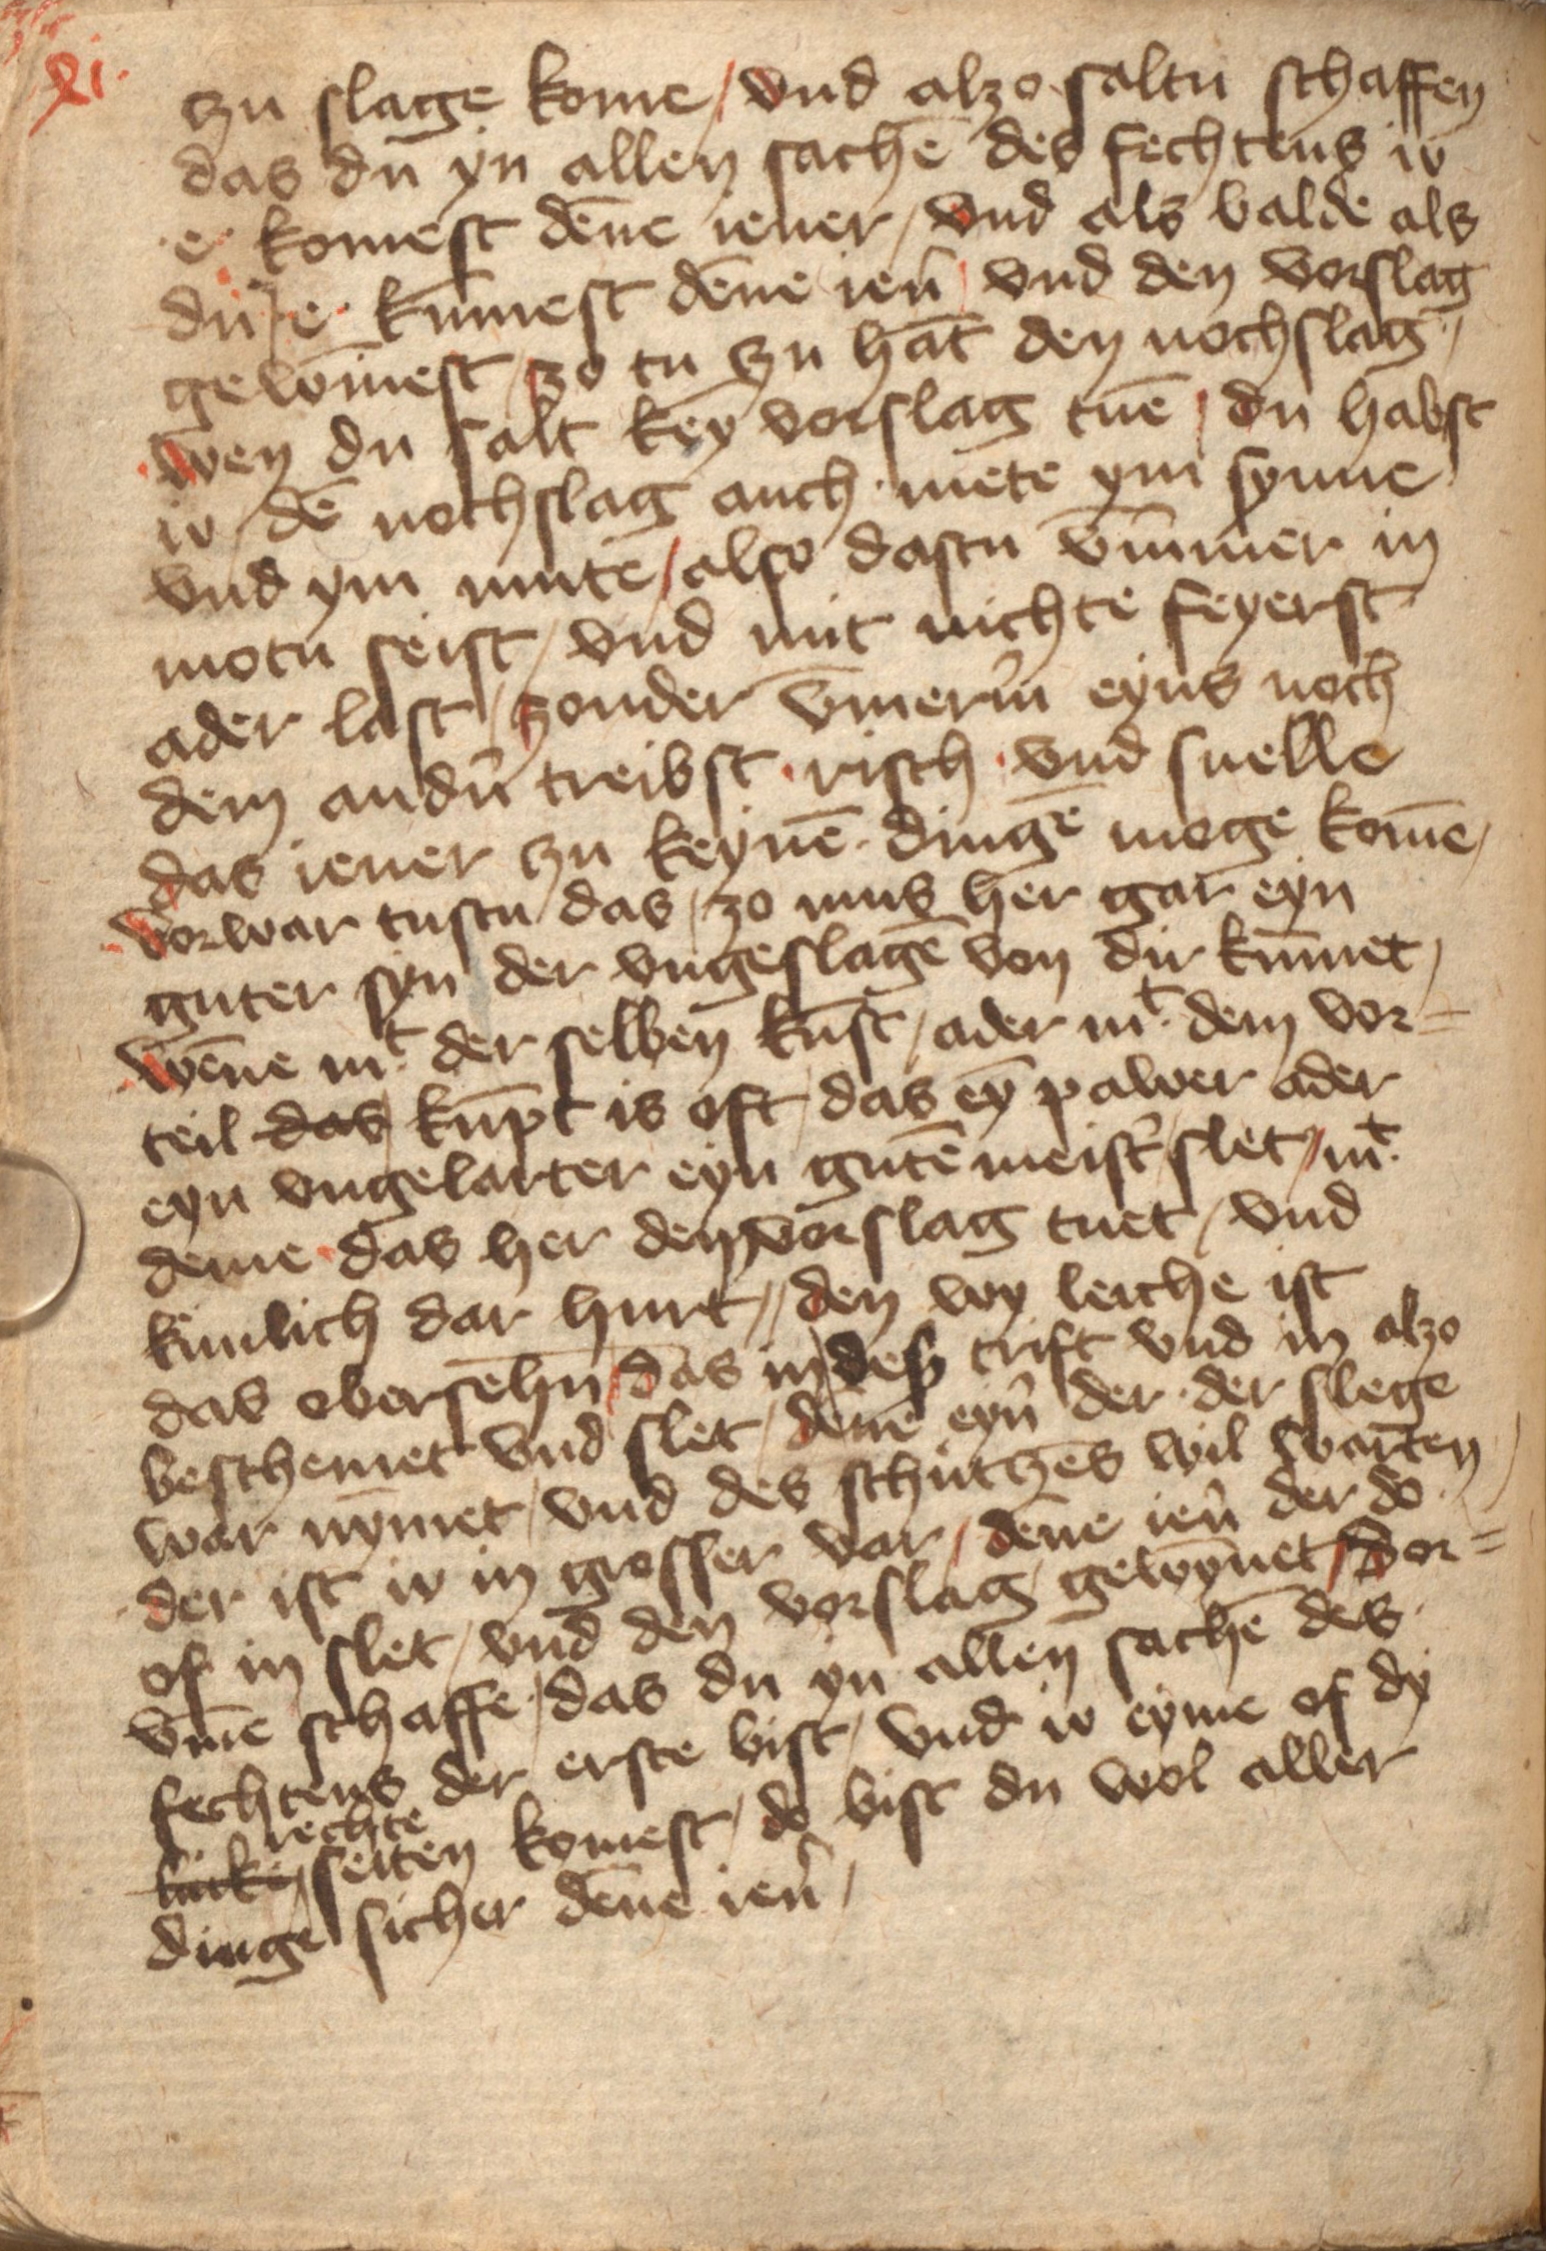 xi.
czu slage kome / vnd alzo saltu schaffen
das du yn allen sachē des fechtens io
e komest dēne iener / vnd als balde als
du e kūmest dēne ien̂ / vnd den vorslag
gewīnest / zo tu czu hāt den nochslag /
wen du salt key̅ vorslag tuē / du habst
io dē nochslag auch mete ym synne
vnd ym mute / also dastu v̄mmer in
motu seist / vnd mit nichte feyerst
ader last / zonder v̄merm̂ eyns noch
dem andn̂ treibst · risch · vnd snelle
das iener czu keynē dingē moge komē /
vorwar tustu das / zo mus her gar eyn
guter syn der vngeslagē von dir kūmet /
wēne mͭ der selben kūst / ader mͭ dem vor=
teil das kūpt is oft / das ey̅ pawer ader
eyn vngelarter eyn gutē meist̂ slet / mͭ
deme das her den vorslag tuet / vnd
künlich dar hurt // den wy leiche ist
das obersēhn / das in des trift vnd in alzo
beschemet vnd slet / dēne eyn̂ der der slege
war ny̅met / vnd des schutczēs wil warten /
der ist io in grosser var / dēne ien̂ der do
of in slet / vnd den vorslag gewy̅net / Dor=
v̄me schaffe / das du yn allen sachē des
fechtens der erste bist / vnd io eyme of dy
rechte
linke seiten komest / do bist du wol aller
dinge sicher dēne ien̂ /